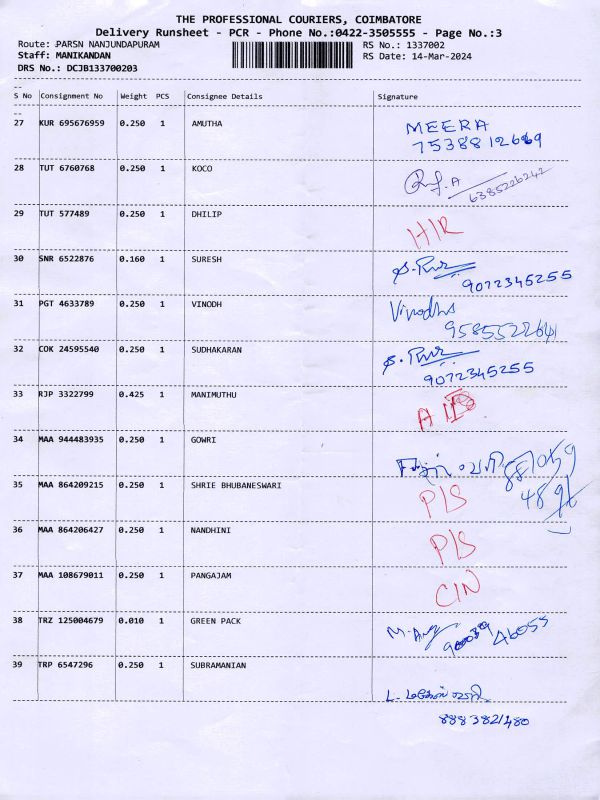 THE PROFESSIONAL COURIERS, COIMBATORE
Delivery Runsheet - PCR - Phone No.:0422-3505555 - Page No.:3
Route: PARSN NANJUNDAPURAM RS No.: 1337002
Staff: MANIKANDAN RS Date: 14-Mar-2024
DRS No.: DCJB133700203
--
S No Consignment No Weight PCS Consignee Details Signature
--
27 KUR 695676959 0.250 1 AMUTHA MEERA
7538812669
28 TUT 6760768 0.250 1 KOCO
6385226242
29 TUT 577489 0.250 1 DHILIP H/R
30 SNR 6522876 0.160 1 SURESH
9072345255
31 PGT 4633789 0.250 1 VINODH Vinodhs
9585522641
32 COK 24595540 0.250 1 SUDHAKARAN
9072345255
33 RJP 3322799 0.425 1 MANIMUTHU
34 MAA 944483935 0.250 1 GOWRI
35 MAA 864209215 0.250 1 SHRIE BHUBANESWARI P/S
36 MAA 864206427 0.250 1 NANDHINI P/S
37 MAA 108679011 0.250 1 PANGAJAM C/N
38 TRZ 125004679 0.010 1 GREEN PACK
39 TRP 6547296 0.250 1 SUBRAMANIAN
8883821480